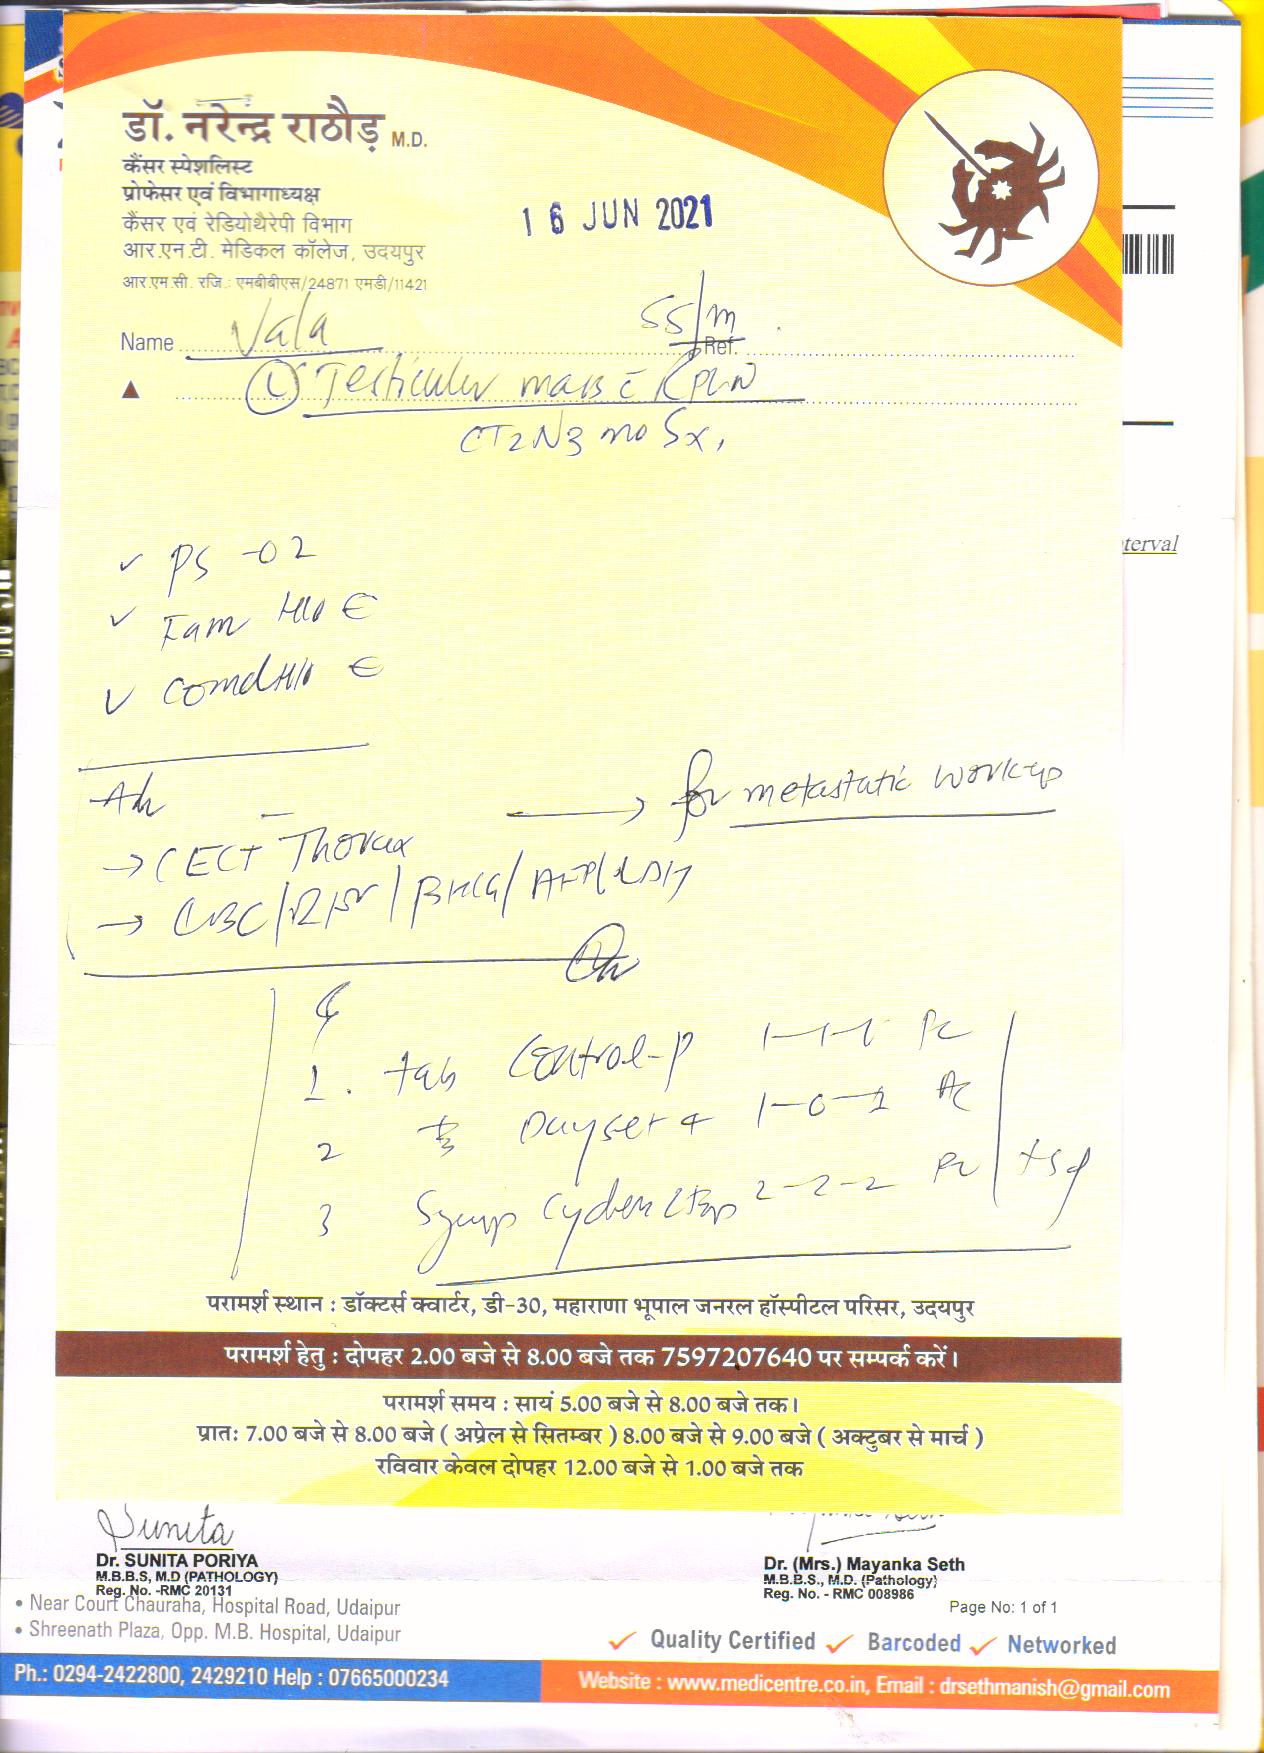 डॉ. नरेन्द्र राठौड़ M.D.
कैंसर स्पेशलिस्ट
प्रोफेसर एवं विभागाध्यक्ष
कैंसर एवं रेडियोथैरेपी विभाग
आर.एन.टी. मेडिकल कॉलेज, उदयपुर
आर.एम.सी. रजि.: एमबीबीएस/24871 एमडी/11421
16 JUN 2021
Name Vala 55/m Ref.
L Testicular mass c RPLN
CT2N3M0Sx,
terval
PS - 02
Fam H/o
H/o
Adv
→ CECT Thorax → for metastatic workup
→ CBC / / BHCG / AFP / LDH
1. tab Control-P 1-1-1 PC
2 1-0-1 AC
3 Syrup 2tsp 2-2-2 PC
परामर्श स्थान : डॉक्टर्स क्वार्टर, डी-30, महाराणा भूपाल जनरल हॉस्पीटल परिसर, उदयपुर
परामर्श हेतु : दोपहर 2.00 बजे से 8.00 बजे तक 7597207640 पर सम्पर्क करें।
परामर्श समय : सायं 5.00 बजे से 8.00 बजे तक।
प्रातः 7.00 बजे से 8.00 बजे ( अप्रेल से सितम्बर ) 8.00 बजे से 9.00 बजे ( अक्टुबर से मार्च )
रविवार केवल दोपहर 12.00 बजे से 1.00 बजे तक
Sunita
Dr. SUNITA PORIYA
M.B.B.S, M.D (PATHOLOGY)
Reg. No. -RMC 20131
Dr. (Mrs.) Mayanka Seth
M.B.B.S., M.D. (Pathology)
Reg. No. - RMC 008986
Page No: 1 of 1
• Near Court Chauraha, Hospital Road, Udaipur
• Shreenath Plaza, Opp. M.B. Hospital, Udaipur
Quality Certified Barcoded Networked
Ph.: 0294-2422800, 2429210 Help : 07665000234
Website : www.medicentre.co.in, Email : drsethmanish@gmail.com